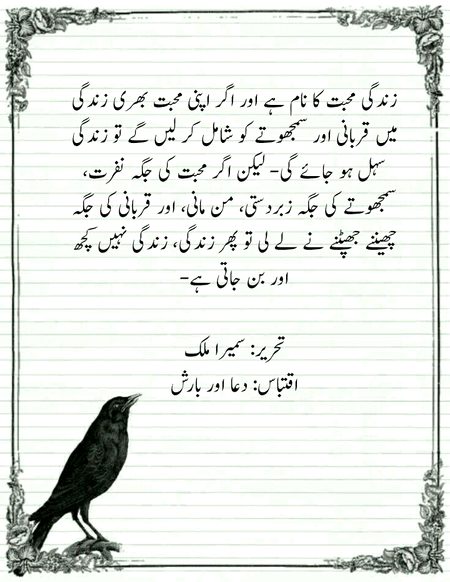 زندگی محبت کا نام ہے اور اگر اپنی محبت بھری زندگی
میں قربانی اور سمجھوتے کو شامل کر لیں گے تو زندگی
سہل ہو جائے گی- لیکن اگر محبت کی جگہ نفرت،
سمجھوتے کی جگہ زبردستی، من مانی، اور قربانی کی جگہ
چھیننے جھپٹنے نے لے لی تو پھر زندگی، زندگی نہیں کچھ
اور بن جاتی ہے-
تحریر: سمیرا ملک
اقتباس: دعا اور بارش